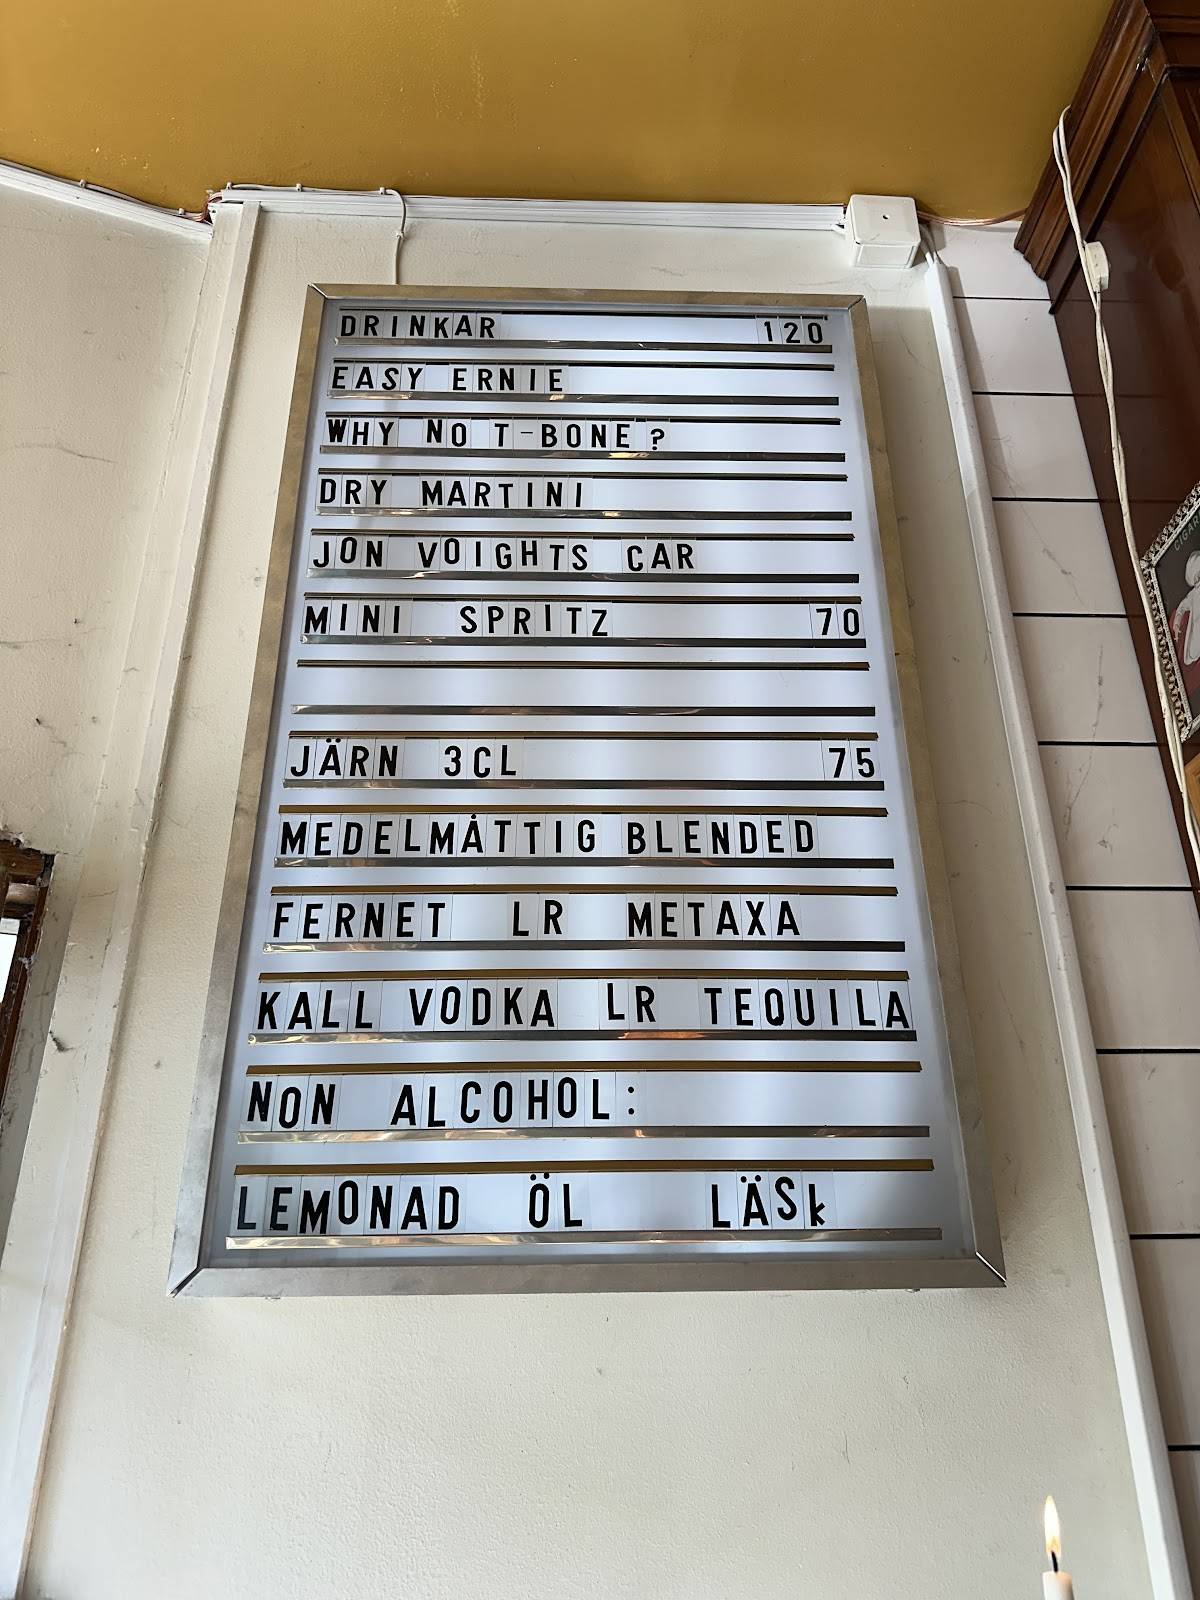 DRINKAR 120
EASY ERNIE
WHY NO T-BONE?
DRY MARTINI
JON VOIGHTS CAR
MINI SPRITZ 70
JÄRN 3CL 75
MEDELMÅTTIG BLENDED
FERNET LR METAXA
KALL VODKA LR TEQUILA
NON ALCOHOL:
LEMONAD ÖL LÄSk